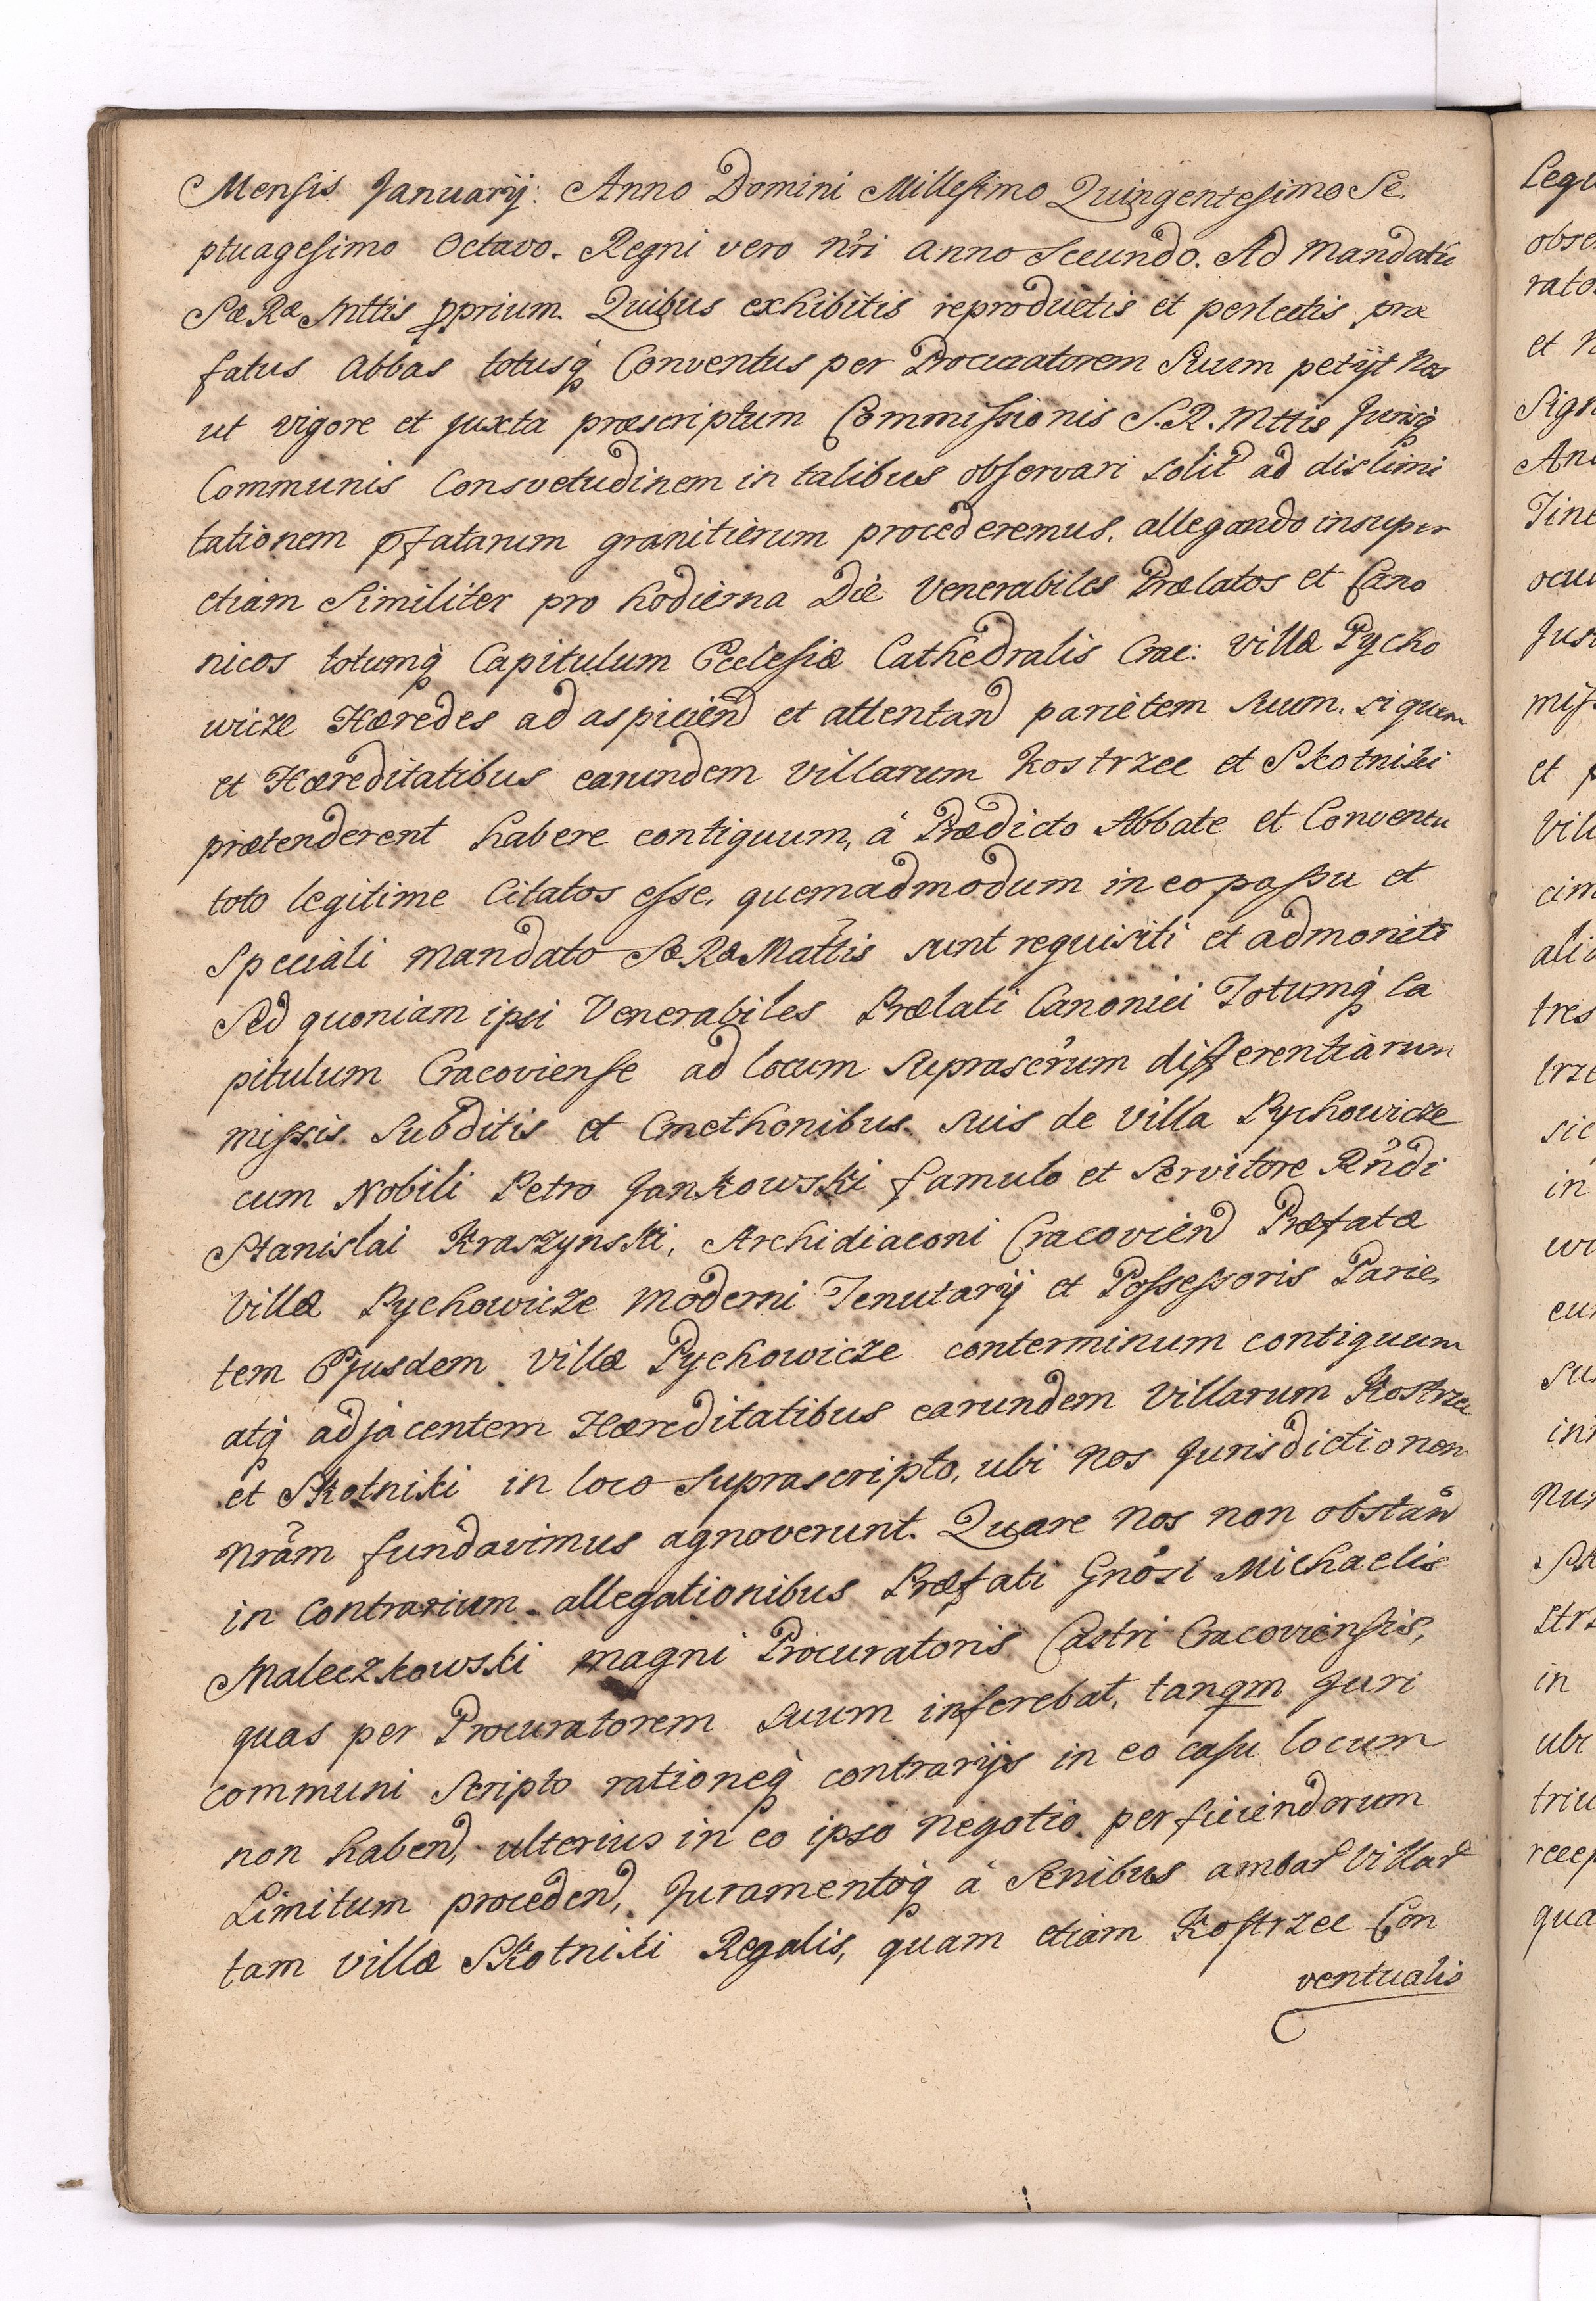 Mensis Januarij: Anno Domini Millesimo Quingentesimo Se
ptuagesimo Octavo. Regni vero nri Anno Secundo. Ad Mandatũ
Sæ Ræ Mttis pprium. Quibus exhibitis reproductis et perlectis præ
fatus Abbas totusq Conventus per Procuratorem Suum petijt nos
ut vigore et juxta præscriptum Commissionis S. R. Mttis Jurisq
Communis Consvetudinem in talibus observari solit ad dislimi
tationem pfatarum granitierum procederemus. allegando insuper
etiam Similiter pro hodierna Die Venerabiles Prælatos et Cano
nicos totumq Capitulum Ecclesiæ Cathedralis Crac: Villæ Pycho
wicze Hæredes ad aspiciend et attentand parietem suum. si quem
et Hæreditatibus earundem Villarum Kostrzec et Skotniki
prætenderent habere contiguum, à Prædicto Abbate et Conventu
toto legitime Citatos esse. quemadmodum in eo passu et
Speciali mandato Sæ Ræ Mattis sunt requisiti et admoniti
Sed quoniam ipsi Venerabiles Prælati Canonici Totumq Ca
pitulum Cracoviense ad locum suprascrũm differentiarum
missis Subditis et Cmethonibus suis de Villa Pychowicze
cum Nobili Petro Jankowski famulo et Servitore Rñdi
Stanislai Kraszynski, Archidiaconi Cracovien Præfatæ
Villæ Pychowicze moderni Tenutarij et Possessoris Parie
tem Ejusdem Villæ Pychowicze conterminum contiguum
atq adjacentem Hæreditatibus earundem Villarum Kostrzec
et Skotniki in loco Suprascripto, ubi nos Jurisdictionem
nrãm fundavimus agnoverunt. Quare nos non obstan
in Contrarium allegationibus Præfati Gnosi Michaelis
Maleczkowski magni Procuratoris Castri Cracoviensis,
quas per Procuratorem suum inferebat, tanqm Juri
communi Scripto rationeq contrarijs in eo casu locum
non habend, ulterius in eo ipso negotio perficiendorum
Limitum procedend, Juramentoq à Senibus ambar Villar
tam Villæ Skotniki Regalis, quam etiam Kostrzec Con
ventualis